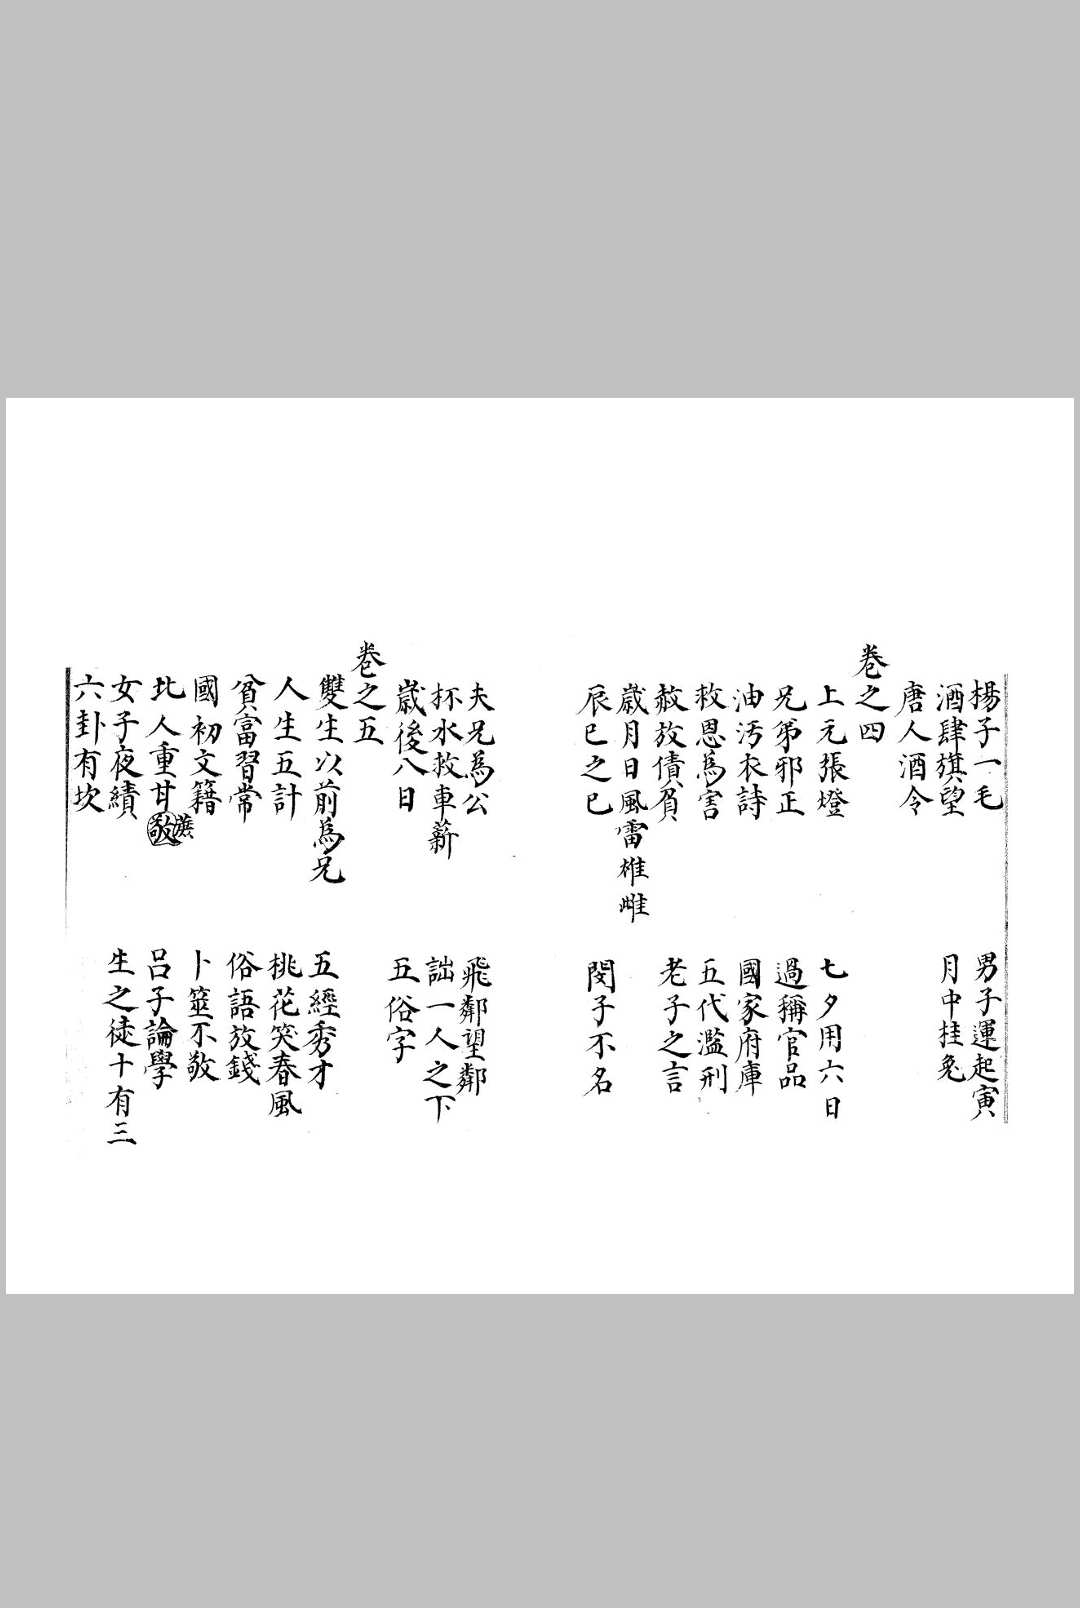 楊子一毛　男子運起寅
酒肆旗望　月中桂兔
唐人酒令
卷之四
上元張燈　七夕用六日
兄弟邪正　過稱官品
油汚衣詩　國家府庫
赦恩爲害　五代濫刑
赦放債負　老子之言
歲月日風雷雄雌
辰巳之巳　閔子不名
夫兄爲公　飛鄰望鄰
杯水救車薪　詘一人之下
歲後八日　五俗字
卷之五
雙生以前爲兄　五經秀才
人生五計　桃花笑春風
貧富習常　俗語放錢
國初文籍　卜筮不敬
北人重甘蔗　呂子論學
女子夜績　生之徒十有三
六卦有坎